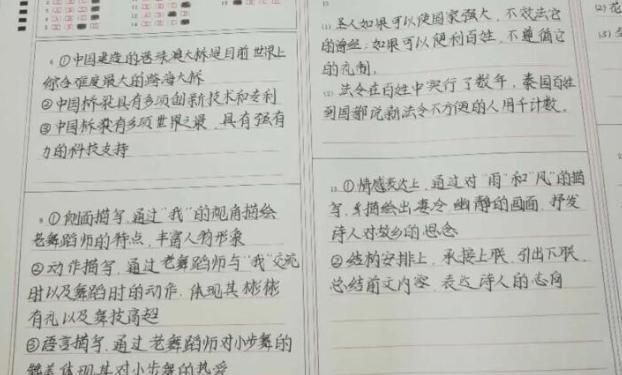 6 ①中国建造的港珠澳大桥是目前世界上
综合难度最大的跨海大桥
②中国桥梁具有多项创新技术和专利
③中国桥梁有多项世界之最，具有强有
力的科技支持
9 ①侧面描写，通过“我”的视角描绘
老舞蹈师的特点，丰富人物形象
②动作描写，通过老舞蹈师与“我”交流
时以及舞蹈时的动作，体现其彬彬
有礼以及舞技高超
③语言描写，通过老舞蹈师对小步舞的
体现其对小步舞的热爱
13
(1)圣人如果可以使国家强大，不效法它
的；如果可以便利百姓，不遵循它
的礼制。
(2)法令在百姓中实行了数年，秦国百姓
到国都说新法令不方便的人用千计数。
15 ①情感表达上，通过对“雨”和“风”的描
写，描绘出凄冷、幽静的画面，抒发
诗人对故乡的思念
②结构安排上，承接上联，引出下联，
总结前文内容，表达诗人的志向
(2)花